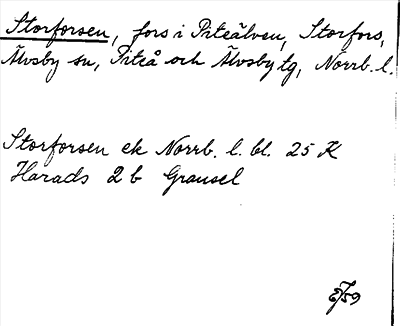 Storforsen, fors i Piteälven, Storfors,
Älvsby sn, Piteå och Älvsby tg, Norrb. l.
Storforsen ek Norrb. l. bl. 25 K
Harads 2 b Gransel